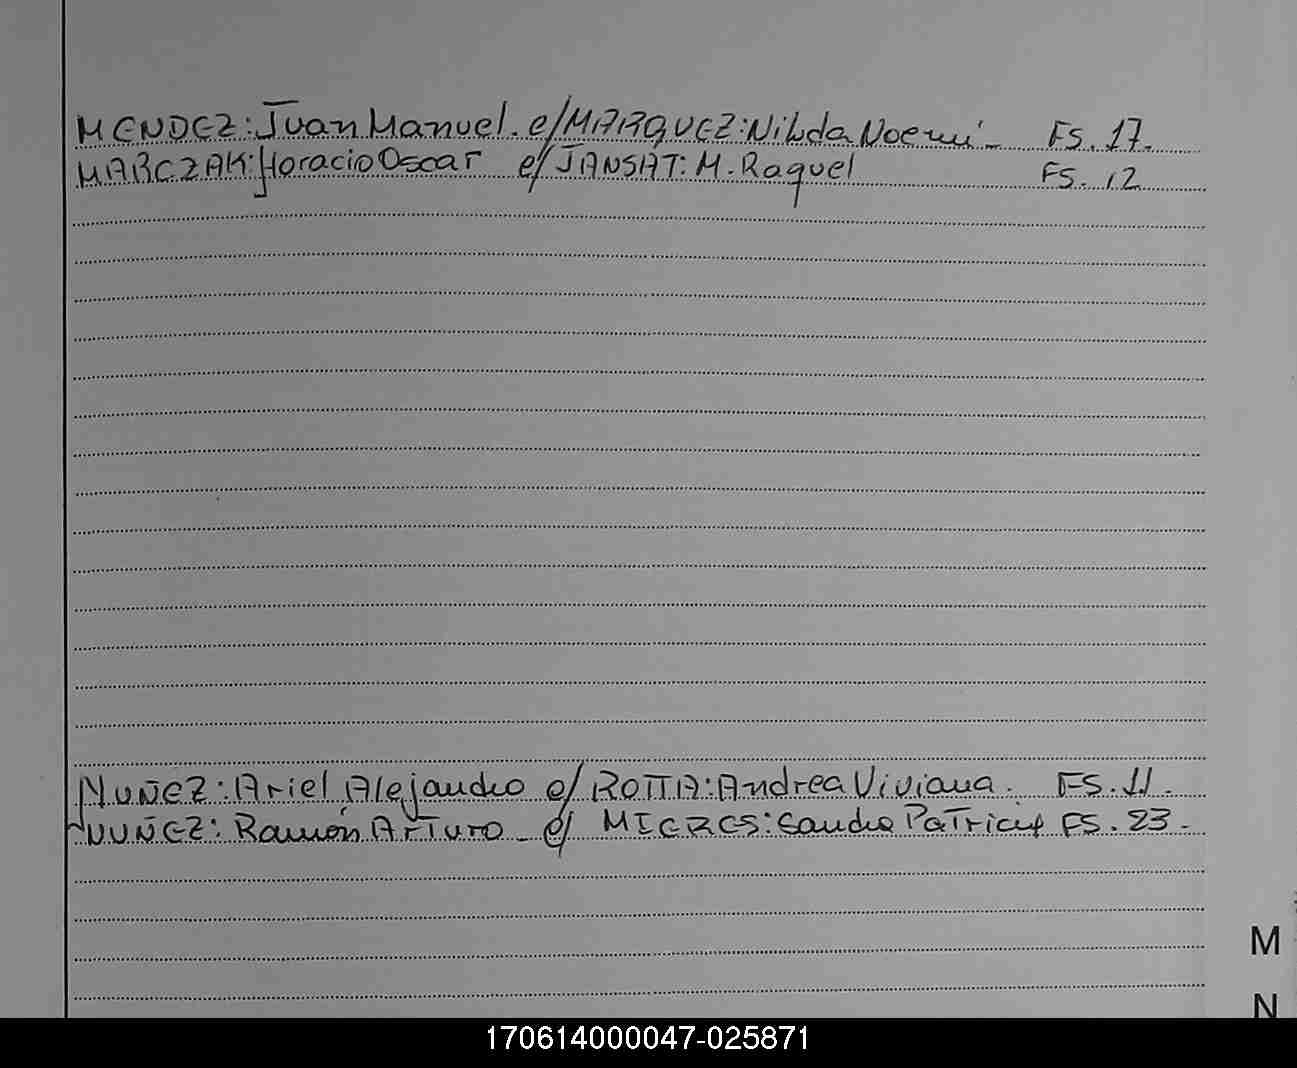 MENDEZ: Juan Manuel. e/ MARQUEZ: Nilda Noemi - FS. 17.
MARCZAK: Horacio Oscar e/ JANSAT: M. Raquel FS. 12
NUÑEZ: Ariel Alejandro e/ ROTTA: Andrea Viviana. FS. 11.
NUÑEZ: Ramón Arturo - e/ MIERES: Sandra Patricia FS. 23.-
M
N
170614000047-025871